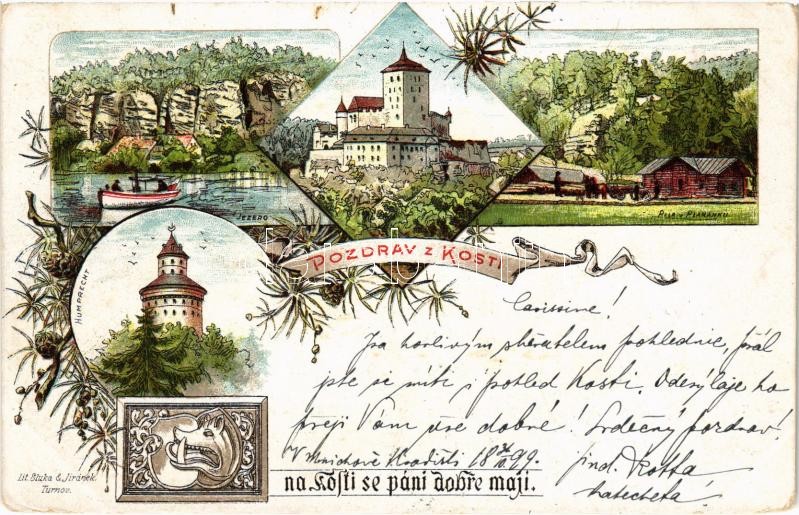 JEZERO
PILA V PLAKÁNKU
POZDRAV Z KOSTI
HUMPRECHT
Carissime!
horlivým sběratelem pohlednic, přál
jste si míti i pohled Kosti. Odesýlaje ho
přeji Vám vše dobré! Srdečný pozdrav!
V Mnichově Hradišti 18 99.
Jind. Kotta
katecheta
na Kosti se páni dobře mají.
Lit. Bluka & Jiránek.
Turnov.